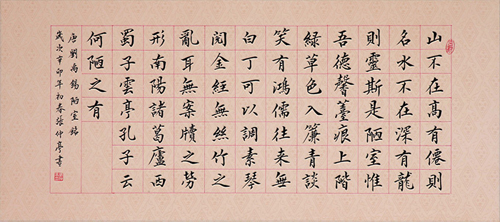 山不在高有僊則
名水不在深有龍
則靈斯是陋室惟
吾德馨薹痕上階
綠草色入簾青談
笑有鴻儒往来無
白丁可以調素琴
閱金經無絲竹之
亂耳無案牘之勞
形南陽諸葛廬西
蜀子雲亭孔子云
何陋之有
唐劉禹錫陋室銘
歲次辛卯年初春張仲亭書